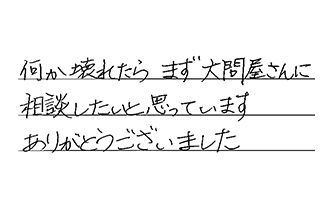 何か壊れたら まず大問屋さんに
相談したいと思っています
ありがとうございました